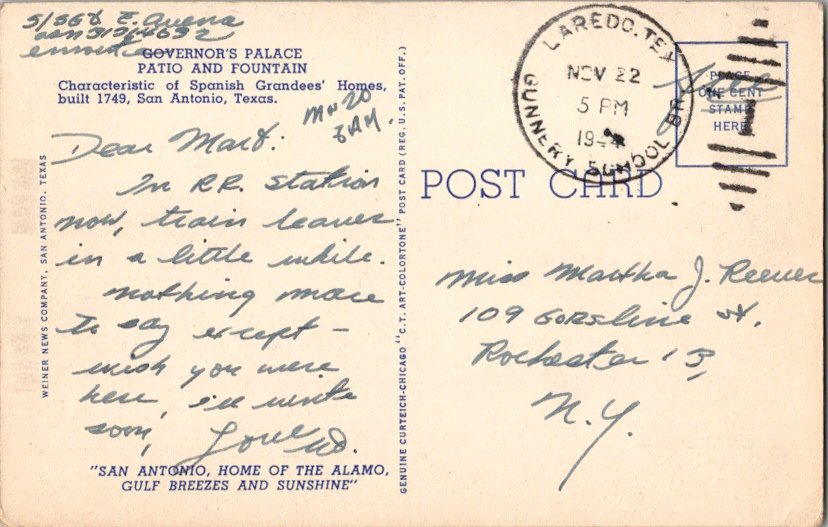 S/Sgt E. Avena
enroute
GOVERNOR'S PALACE
PATIO AND FOUNTAIN
Characteristic of Spanish Grandees' Homes,
built 1749, San Antonio, Texas.
Dear Mart:
In R.R. station
now, train leaves
in a little while.
Nothing more
to say except –
wish you were
here, i'll write
soon,
Love
"SAN ANTONIO, HOME OF THE ALAMO,
GULF BREEZES AND SUNSHINE"
WEINER NEWS COMPANY, SAN ANTONIO, TEXAS
GENUINE CURTEICH-CHICAGO "C.T. ART-COLORTONE" POST CARD (REG. U.S. PAT. OFF.)
POST CARD
LAREDO, TEX
NOV 22
5 PM
1944
GUNNERY SCHOOL BR.
PLACE
ONE CENT
STAMP
HERE
Miss Martha J. Reever
109 Gorsline St.
Rochester 13,
N.Y.